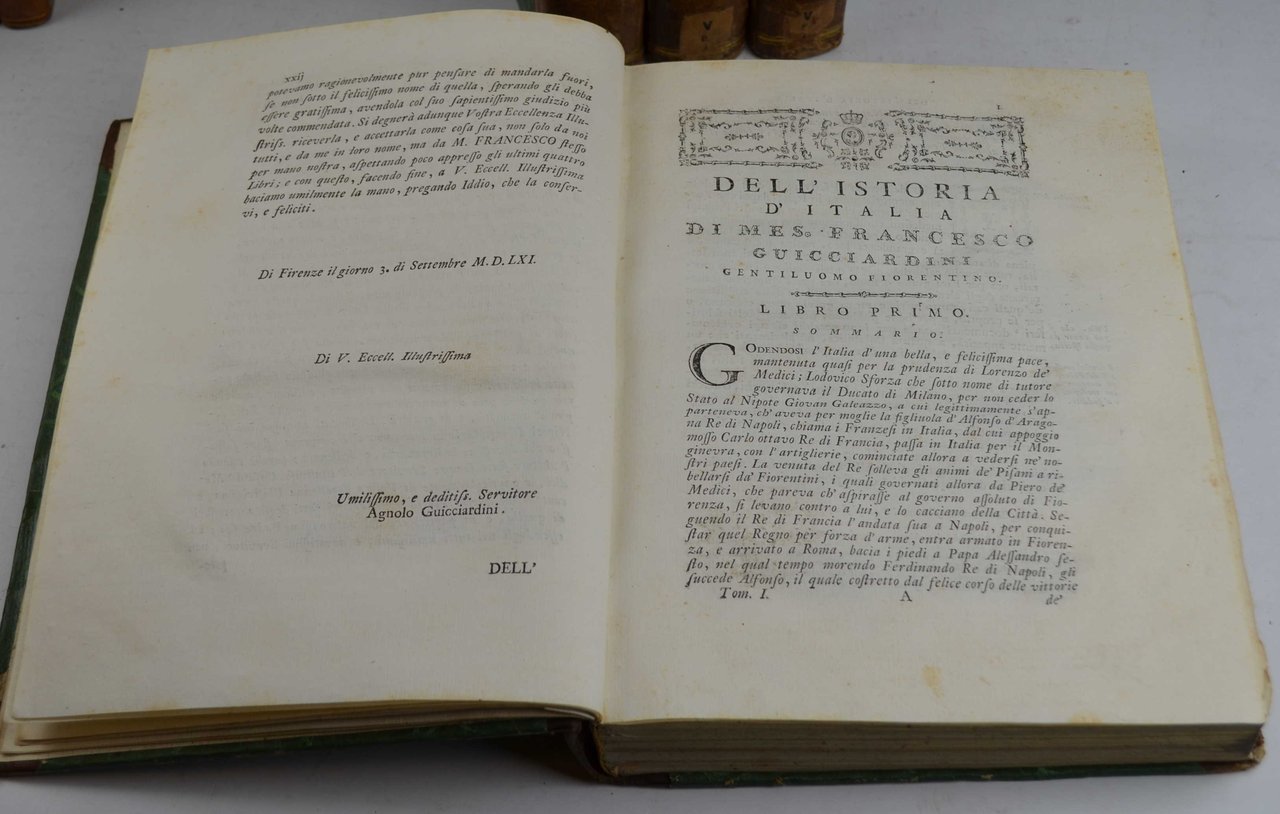 xxij
potevamo ragionevolmente pur pensare di mandarla fuori,
se non sotto il felicissimo nome di quella, sperando gli debba
essere gratissima, avendola col suo sapientissimo giudizio più
volte commendata. Si degnerà adunque Vostra Eccellenza Illu-
striss. riceverla, e accettarla come cosa sua, non solo da noi
tutti, e da me in loro nome, ma da M. FRANCESCO stesso
per mano nostra, aspettando poco appresso gli ultimi quattro
Libri; e con questo, facendo fine, a V. Eccell. Illustrissima
baciamo umilmente la mano, pregando Iddio, che la conser-
vi, e feliciti.
Di Firenze il giorno 3. di Settembre M.D.LXI.
Di V. Eccell. Illustrissima
Umilissimo, e deditiss. Servitore
Agnolo Guicciardini.
DELL'
1
DELL' ISTORIA
D' ITALIA
DI MES. FRANCESCO
GUICCIARDINI
GENTILUOMO FIORENTINO.
LIBRO PRIMO.
SOMMARIO.
GODENDOSI l'Italia d'una bella, e felicissima pace,
mantenuta quasi per la prudenza di Lorenzo de'
Medici; Lodovico Sforza che sotto nome di tutore
governava il Ducato di Milano, per non ceder lo
Stato al Nipote Giovan Galeazzo, a cui legittimamente s'ap-
parteneva, ch'aveva per moglie la figliuola d'Alfonso d'Arago-
na Re di Napoli, chiama i Franzesi in Italia, dal cui appoggio
mosso Carlo ottavo Re di Francia, passa in Italia per il Mon-
ginevra, con l'artiglierie, cominciate allora a vedersi ne' no-
stri paesi. La venuta del Re solleva gli animi de' Pisani a ri-
bellarsi da' Fiorentini, i quali governati allora da Piero de'
Medici, che pareva ch'aspirasse al governo assoluto di Fio-
renza, si levano contro a lui, e lo cacciano della Città. Se-
guendo il Re di Francia l'andata sua a Napoli, per conqui-
star quel Regno per forza d'arme, entra armato in Fioren-
za, e arrivato a Roma, bacia i piedi a Papa Alessandro se-
sto, nel qual tempo morendo Ferdinando Re di Napoli, gli
succede Alfonso, il quale costretto dal felice corso delle vittorie
Tom. I. A de'
V
V